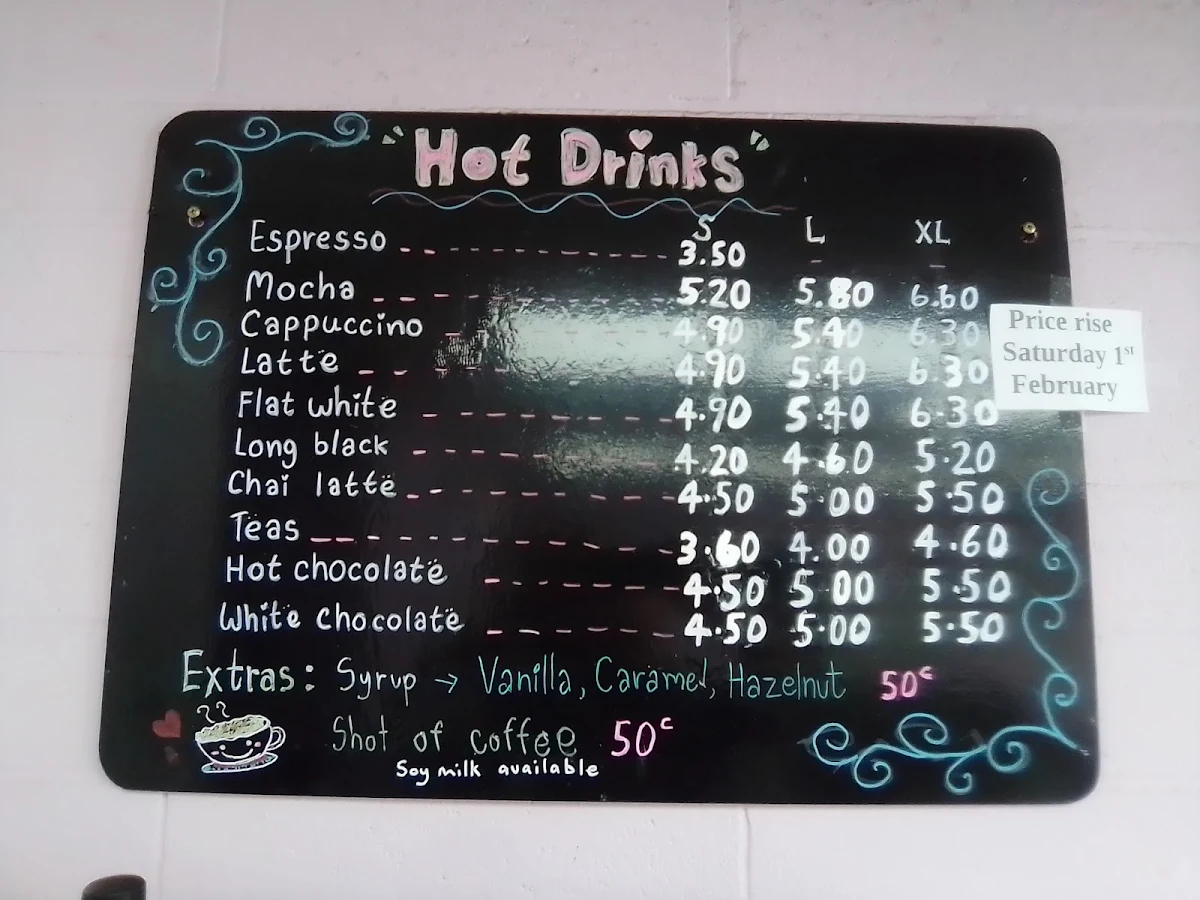 "Hot Drinks"
S L XL
Espresso 3.50 - -
Mocha 5.20 5.80 6.60
Cappuccino 4.90 5.40 6.30
Latte 4.90 5.40 6.30
Flat white 4.90 5.40 6.30
Long black 4.20 4.60 5.20
Chai latte 4.50 5.00 5.50
Teas 3.60 4.00 4.60
Hot chocolate 4.50 5.00 5.50
White chocolate 4.50 5.00 5.50
Extras: Syrup → Vanilla, Caramel, Hazelnut 50c
Shot of coffee 50c
Soy milk available
Price rise
Saturday 1st
February